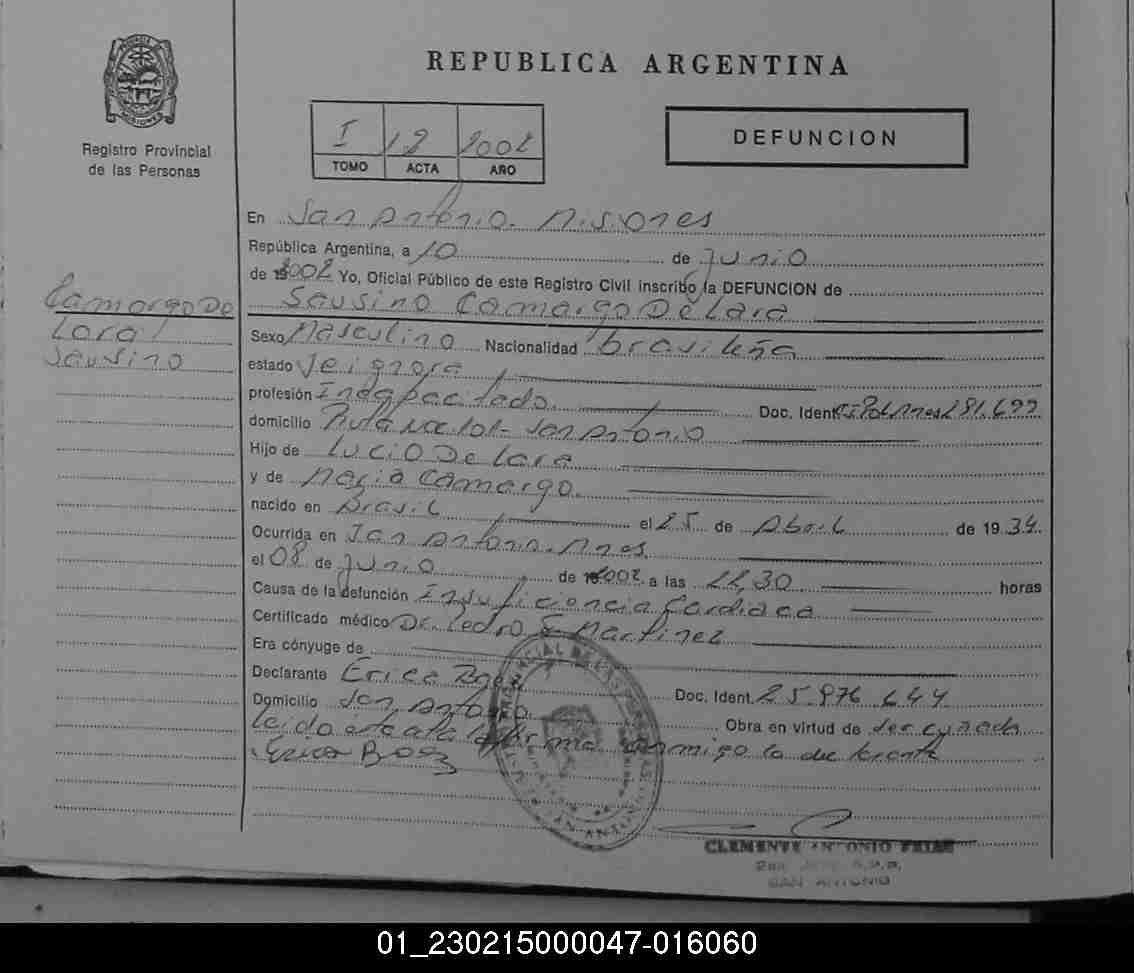 REPUBLICA ARGENTINA
I 12 2002
TOMO ACTA AÑO
DEFUNCION
Registro Provincial
de las Personas
Camargo De
Lara
Sausino
En San Antonio. Misiones
República Argentina, a 10 de Junio
de 2002 Yo, Oficial Público de este Registro Civil inscribo la DEFUNCION de
Sausino Camargo De Lara
Sexo Masculino Nacionalidad brasileña
estado Se ignora
profesión Incapacitado Doc. Ident. Ci Pol Mnes 281.699
domicilio Ruta Nac 101 - San Antonio
Hijo de Lucio De Lara
y de Maria Camargo.
nacido en Brasil el 25 de Abril de 1934.
Ocurrida en San Antonio. Mnes
el 08 de Junio de 2002 a las 22,30 horas
Causa de la defunción Insuficiencia Cardiaca
Certificado médico Dr. Pedro Martinez
Era cónyuge de
Declarante Erica Baez Doc. Ident. 25.976.644
Domicilio San Antonio
Obra en virtud de ser cuñada
leido esta acta la firma conmigo la declarante
Erica Baez
CLEMENTE ANTONIO FRIAS
SAN ANTONIO
01_230215000047-016060